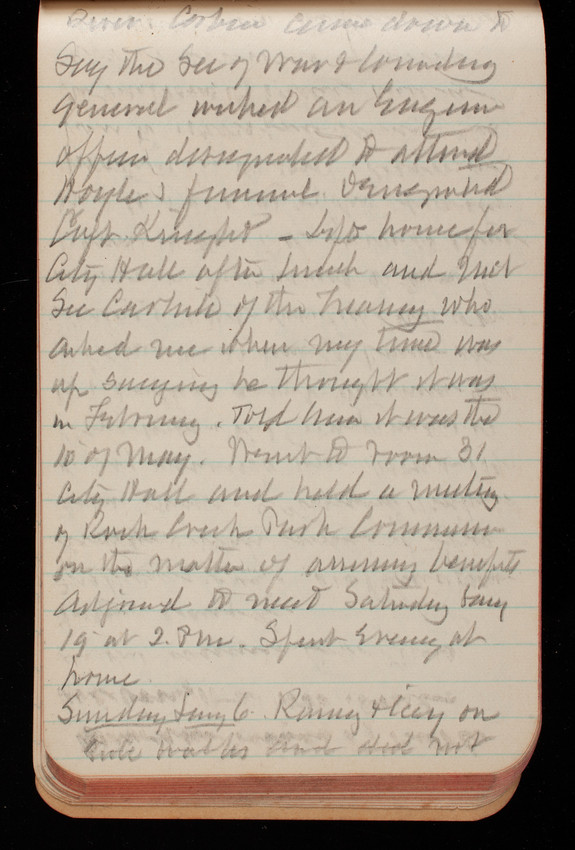 Corbin came down to
Say the Sec of War & Comding
General wished an Engineer
officer designated to attend
Hoyle's funeral. Designated
Capt Knight - Left home for
City Hall after lunch and met
Sec Carlisle of the Treasury who
asked me when my time was
up saying he thought it was
in February. Told him it was the
10 of May. Went to room 31
City Hall and held a meeting
of Rock Creek Park Commission
on the matter of assessing benefits
Adjourned to meet Saturday Jany
19 at 2. P.m. Spent Evening at
home
Sunday Jany 6. Rainy & icy on
side walks and did not